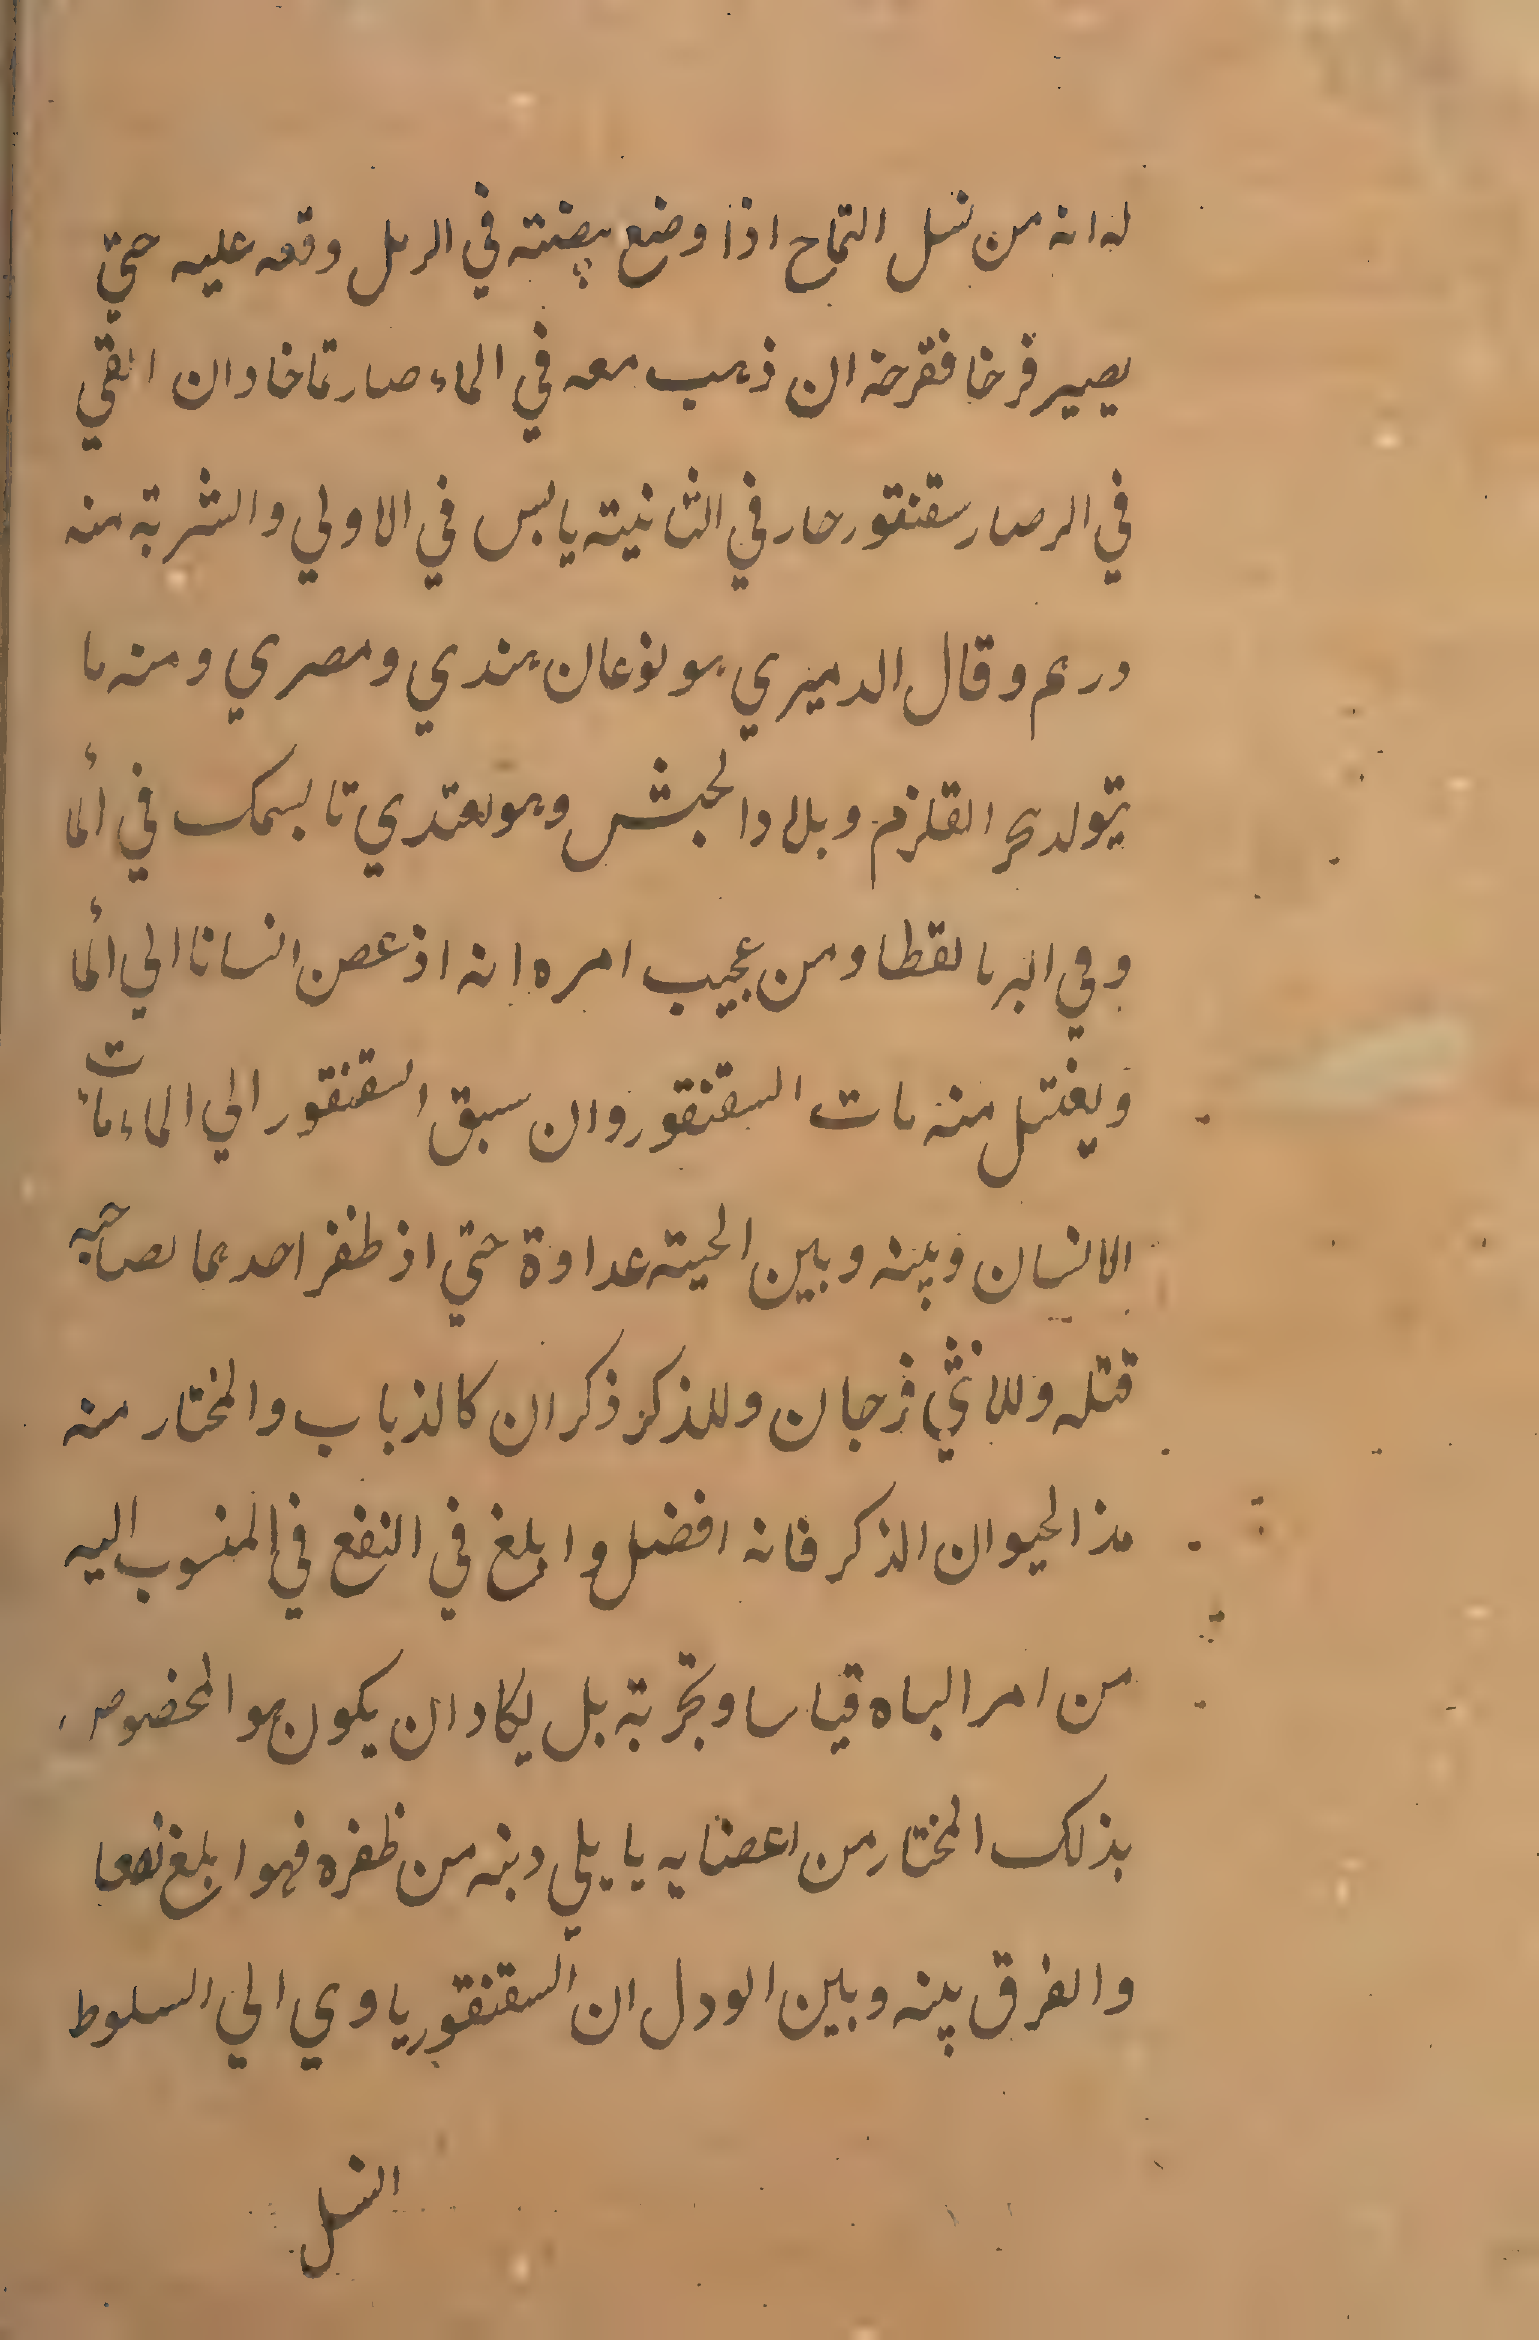 له انه من نسل التماح اذا وضع بيضته في الرمل وقعه عليه حتي
يصير فرخا فقرخة ان ذهب معه في الماء صار تماخا وان القي
في الر صار سقنقور حار في الثانيته يابس في الاولي والشربة منه
درهم وقال الدميري هو نوعان هندي ومصري ومنه ما
يتولد بحر القلزم وبلاد الحبش وهو لعتدي تا لسمك في الماء
وفي البر بالقطا ومن عجيب امره انه اذ عصن انسانا الي الماء
ويغتسل منه مات السقنقور وان سبق السقنقور الي الماء مات
الانسان وبينه وبين الحيته عداوة حتي اذ ظفر احدهما لصاحبه
قتله وللانثي فرجان وللذكر ذكران كالذباب والمختار منه
هذ الحيوان الذكر فانه افضل وابلغ في النفع في المنسوب اليه
من امر الباه قياسا وتجربة بل يكاد ان يكون هو المخصوص
بذلك المختار من اعضايه يا يلي دبنه من ظفره فهو ابلغ نفعا
والفرق بينه وبين الودل ان السقنقور ياوي الي السلوط
النسل